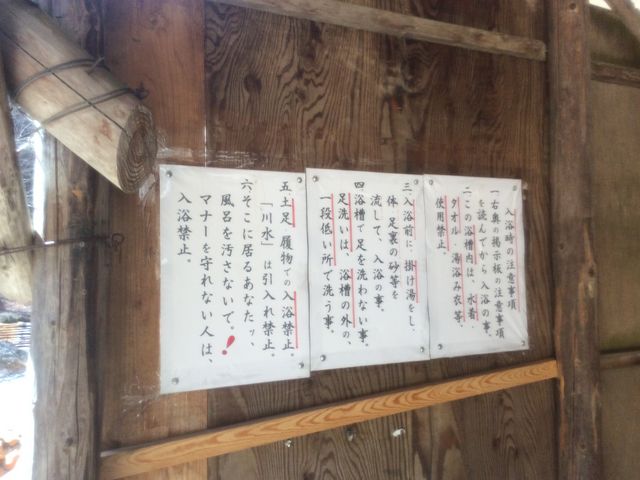 入浴時の注意事項
一右奥の掲示板の注意事項
を読んでから、入浴の事。
二この浴槽内は、水着、
タオル、湯浴み衣等、
使用禁止。
三入浴前に、掛け湯をし、
体、足裏の砂等を
流して、入浴の事。
四浴槽で足を洗わない事。
足洗いは、浴槽の外の、
一段低い所で洗う事。
五土足、履物での入浴禁止。
「川水」は引入れ禁止。
六そこに居るあなたッ、
風呂を汚さないで。！
マナーを守れない人は、
入浴禁止。